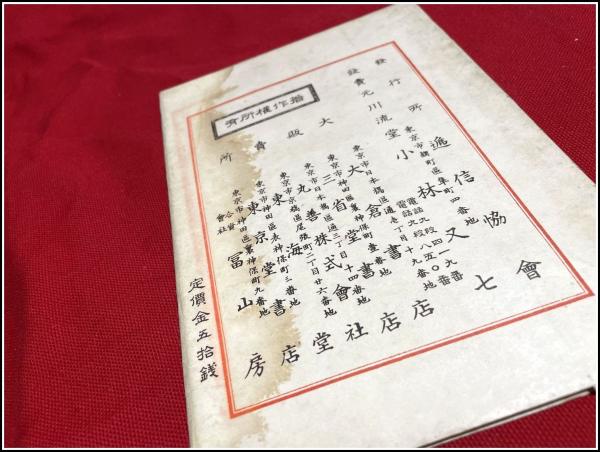 發行所 遞信協會
東京市麹町區隼町四番地
電話九段四一一九番
電話九段八五〇番
發賣元 川流堂 小林又七
東京市日本橋區通壹丁目十九番地
大倉書店
東京市神田區裏神保町壹番地
三省堂書店
東京市日本橋區通三丁目十四番地
丸善株式會社
東京市京橋區尾張町二丁目廿六番地
東海堂
東京市神田區表神保町三番地
東京堂書店
東京市神田區裏神保町九番地
合資會社 冨山房
大販賣所
著作權所有
定價金五拾錢